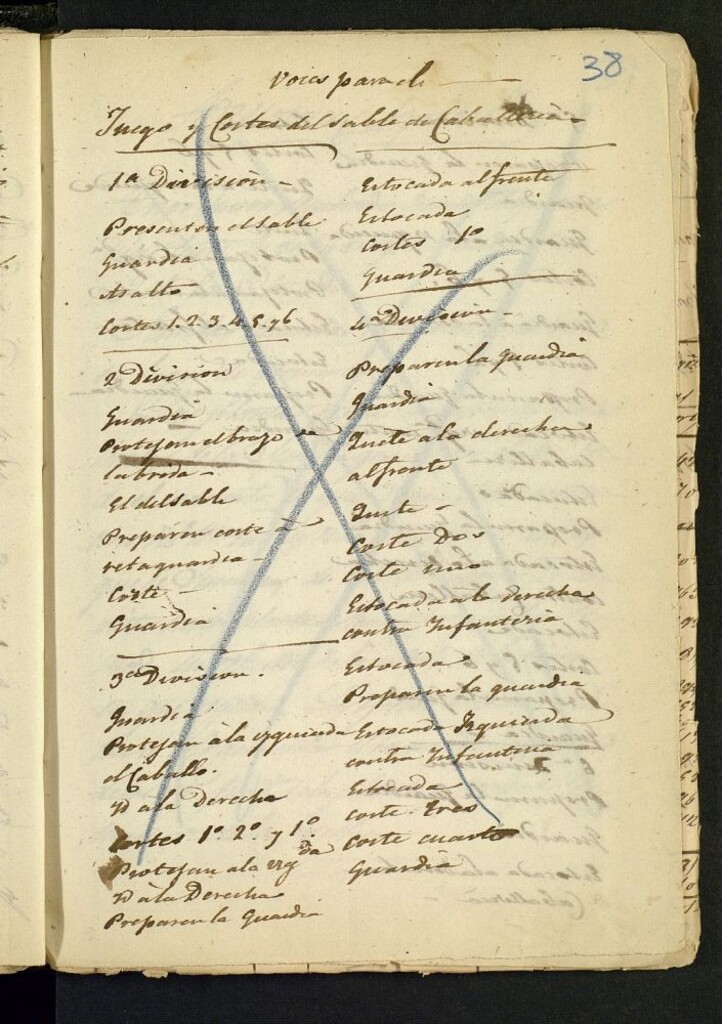 38
Voces para el
Juego y Cortes del sable de Caballeria
1ª Division
Presenten el sable
Guardia
Asalto
Cortes 1. 2. 3. 4. 5. y 6
2 Division
Guardia
Protejan el brazo de
la brida
El del sable
Preparen corte à
retaguardia
Corte
Guardia
3ª Division.
Guardia
Protejan à la yzquierda
el Caballo.
Yd a la Derecha
Cortes 1º. 2º. y 1º.
Protejan a la yzqda
Yd à la Derecha
Preparen la Guardia
Estocada al frente
Estocada
Cortes 1º
Guardia
4ª Division
Preparen la guardia
Guardia
Quite à la derecha
al frente
Quite
Corte Dos
Corte uno
Estocada a la derecha
contra Infanteria
Estocada
Preparen la guardia
Estocada Izquierda
contra Infanteria
Estocada
corte tres
Corte cuarto
Guardia